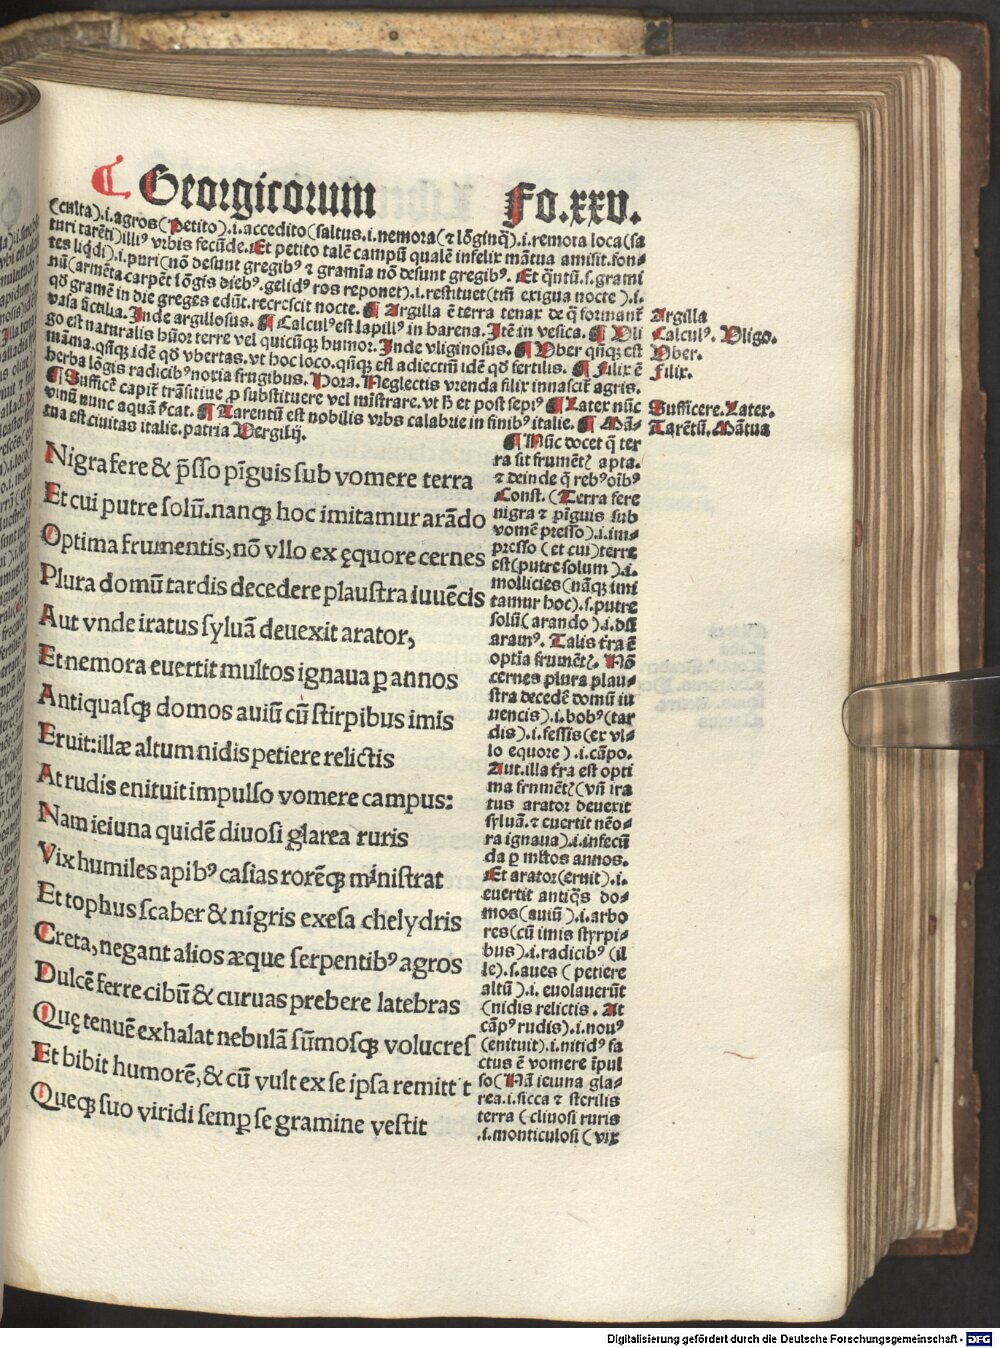 ☾ Georgicorum Fo.xxv.
(culta).i.agros(Petito).i.accedito(saltus.i.nemora(⁊ lõginq̃).i.remota loca(sa
turi tarẽti)illiꝰ vrbis fecũde.Et petito talẽ campũ qualẽ infelix mãtua amisit.fon-
tes liq̃di).i.puri(nõ desunt gregibꝰ ⁊ gramia nõ desunt gregibꝰ. Et q̃ntũ.s.grami
nũ(armẽta carpẽt lõgis diebꝰ.gelidꝰ ros reponet).i.restituet(tm̃ exigua nocte).i.
qď gramẽ in die greges edũt.recrescit nocte. ¶ Argilla ẽ terra tenax de q̃ formant̃
vasa fictilia. Inde argillosus. ¶ Calculꝰ est lapillꝰ in harena. Itẽ in vesica. ¶ Vli
go est naturalis hũor terre vel quicũq; humor. Inde vliginosus. ¶ Vber qñq; est
mãma. qñq; idẽ qď vbertas. vt hoc loco. qñq; est adiectiũ idẽ qď fertilis. ¶ Filix ẽ
herba lõgis radicibꝰ noxia frugibus. Hora. Neglectis vrenda filix innascit̃ agris.
¶ Sufficẽ capit̃ trãsitiue ꝓ substituere vel mĩstrare. vt ħ et post sepiꝰ ¶ Latex nũc
vinũ nunc aquã s̃cat. ¶ Tarentũ est nobilis vrbs calabrie in finibꝰ italie. ¶ Mã-
tua est ciuitas italie. patria Vergilij.
Argilla
Calculꝰ. Vligo.
Vber.
Filix.
Sufficere. Latex.
Tarẽtũ. Mãtua
Nigra fere & p̃sso pĩguis sub vomere terra
Et cui putre solũ. nanq; hoc imitamur arãdo
Optima frumentis, nõ vllo ex ęquore cernes
Plura domũ tardis decedere plaustra iuuẽcis
Aut vnde iratus syluã deuexit arator,
Et nemora euertit multos ignaua ꝑ annos
Antiquasq; domos auiũ cũ stirpibus imis
Eruit: illæ altum nidis petiere relictis
At rudis enituit impulso vomere campus:
Nam ieiuna quidẽ diuosi glarea ruris
Vix humiles apibꝰ casias rorẽq; ministrat
Et tophus scaber & nigris exesa chelydris
Creta, negant alios æque serpentibꝰ agros
Dulcẽ ferre cibũ & curuas prebere latebras
Quę tenuẽ exhalat nebulã fũmosq; volucres
Et bibit humorẽ, & cũ vult ex se ipsa remitt t
Queq; suo viridi semꝑ se gramine vestit
¶ Nũc docet q̃ ter
ra sit frumẽt̃ apta.
⁊ deinde q̃ rebꝰ oĩbꝰ
Const. (Terra fere
nigra ⁊ pĩguis sub
vomẽ presso).i.im-
presso (et cui) terre
est (putre solum).i.
mollicies (nãq; imi
tamur hoc).s.putre
solũ (arando).i.dũ
aramꝰ. Talis t̃ra ẽ
optĩa frumẽt̃. Nõ
cernes plura plau-
stra decedẽ domũ iu
uencis).i.bobꝰ (tar
dis).i.fessis (ex vl-
lo equore).i.cãpo.
Aut. illa t̃ra est opti
ma frnmẽt̃ (vñ ira
tus arator deuexit
syluã. ⁊ euertit nẽo-
ra ignaua).i.infecũ
da ꝑ mltos annos.
Et arator (eruit).i.
euertit antiq̃s do-
mos (auiũ).i.arbo
res (cũ imis styrpi-
bus).i.radicibꝰ (il
le).s.aues (petiere
altũ).i. euolauerũt
(nidis relictis. At
cãpꝰ rudis).i.nouꝰ
(enituit).i.nitidꝰ fa
ctus ẽ vomere ĩpul
so (Nã ieiuna gla-
rea.i.sicca ⁊ sterilis
terra (cliuosi ruris
.i.monticulosi (vix
Digitalisierung gefördert durch die Deutsche Forschungsgemeinschaft - DFG